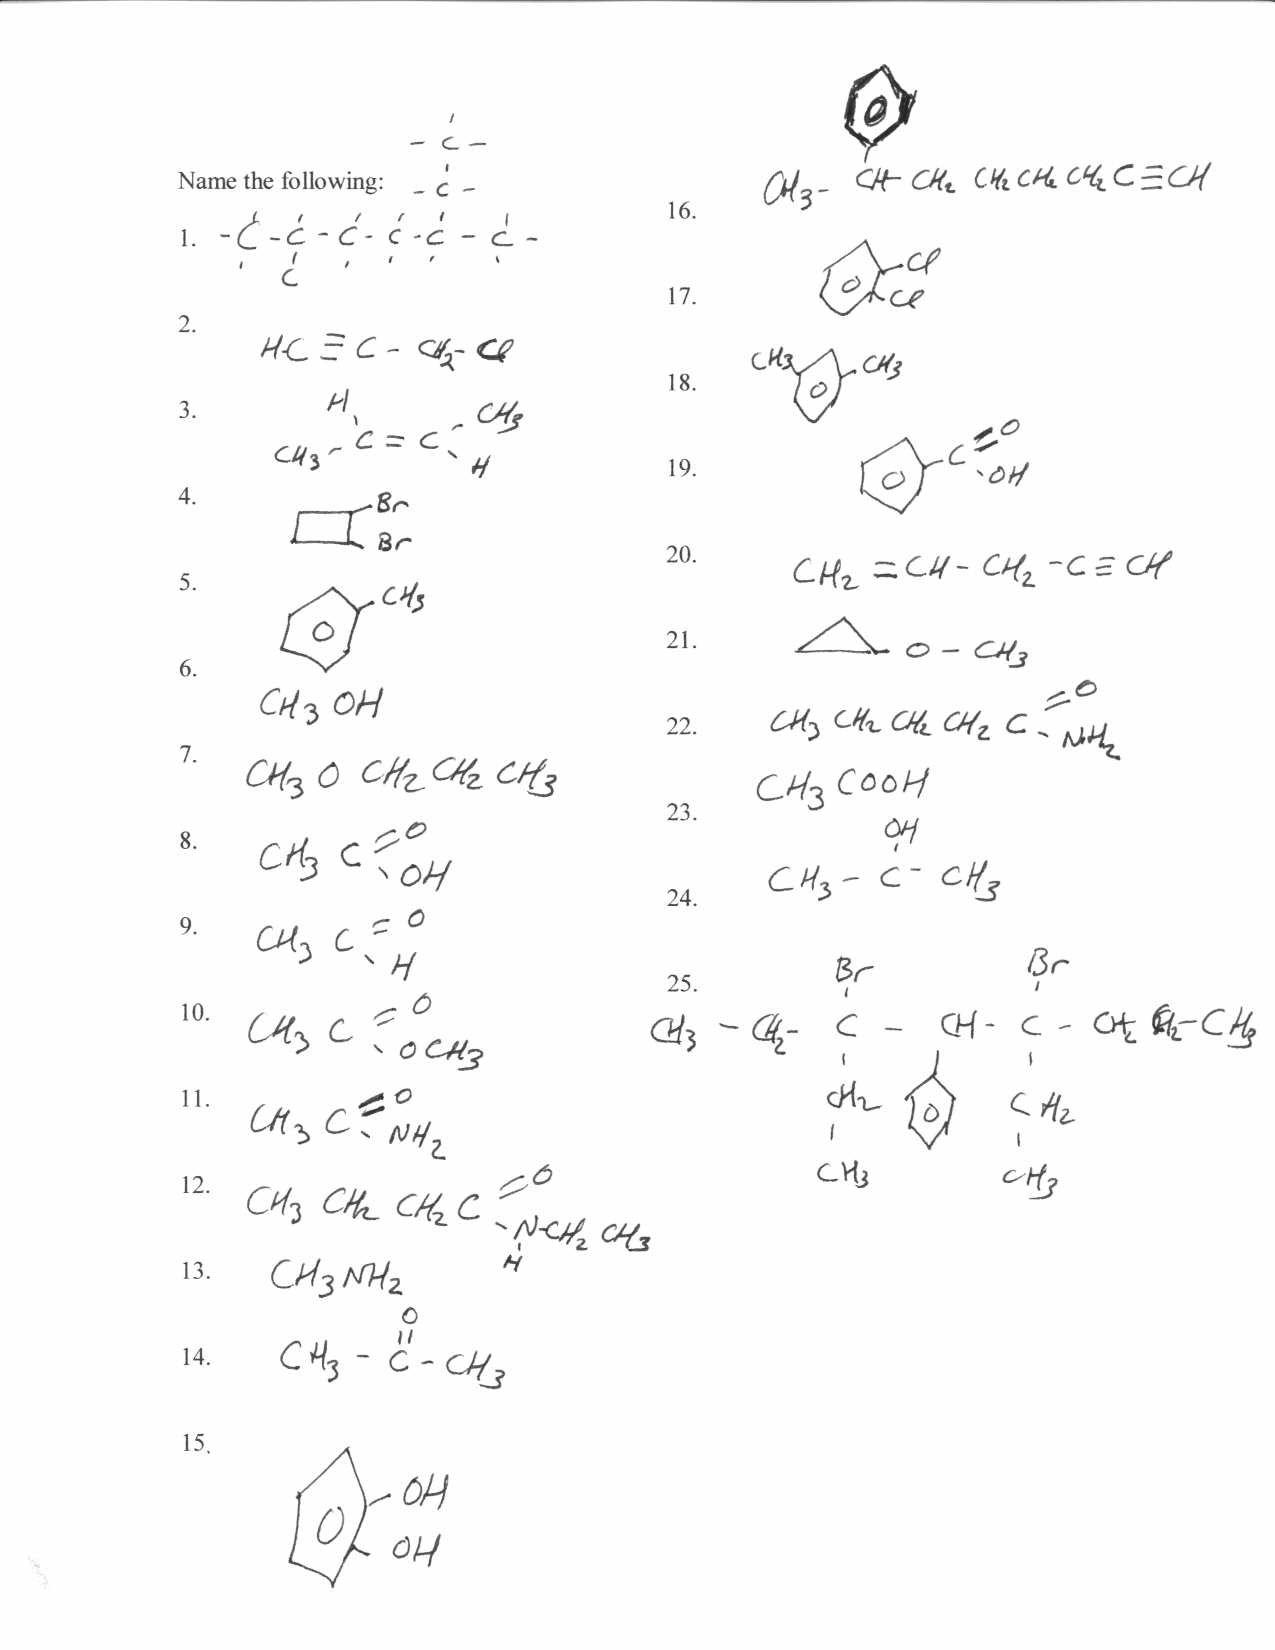 Name the following:
- C -
- C -
1. - C - C - C - C - C - C -
C
2. HC ≡ C - CH2 - Cl
3. H CH3
CH3 - C = C
H
4. Br
Br
5. CH3
6. CH3 OH
7. CH3 O CH2 CH2 CH3
8. CH3 C = O
OH
9. CH3 C = O
H
10. CH3 C = O
OCH3
11. CH3 C = O
NH2
12. CH3 CH2 CH2 C = O
N-CH2 CH3
H
13. CH3 NH2
14. O
CH3 - C - CH3
15. OH
OH
16. CH3 - CH - CH2 CH2 CH2 CH2 C ≡ CH
17. Cl
Cl
18. CH3 CH3
19. C = O
OH
20. CH2 = CH - CH2 - C ≡ CH
21. O - CH3
22. CH3 CH2 CH2 CH2 C = O
NH2
23. CH3 COOH
24. OH
CH3 - C - CH3
25. Br Br
CH3 - CH2 - C - CH - C - CH2 CH2 - CH3
CH2 CH2
CH3 CH3